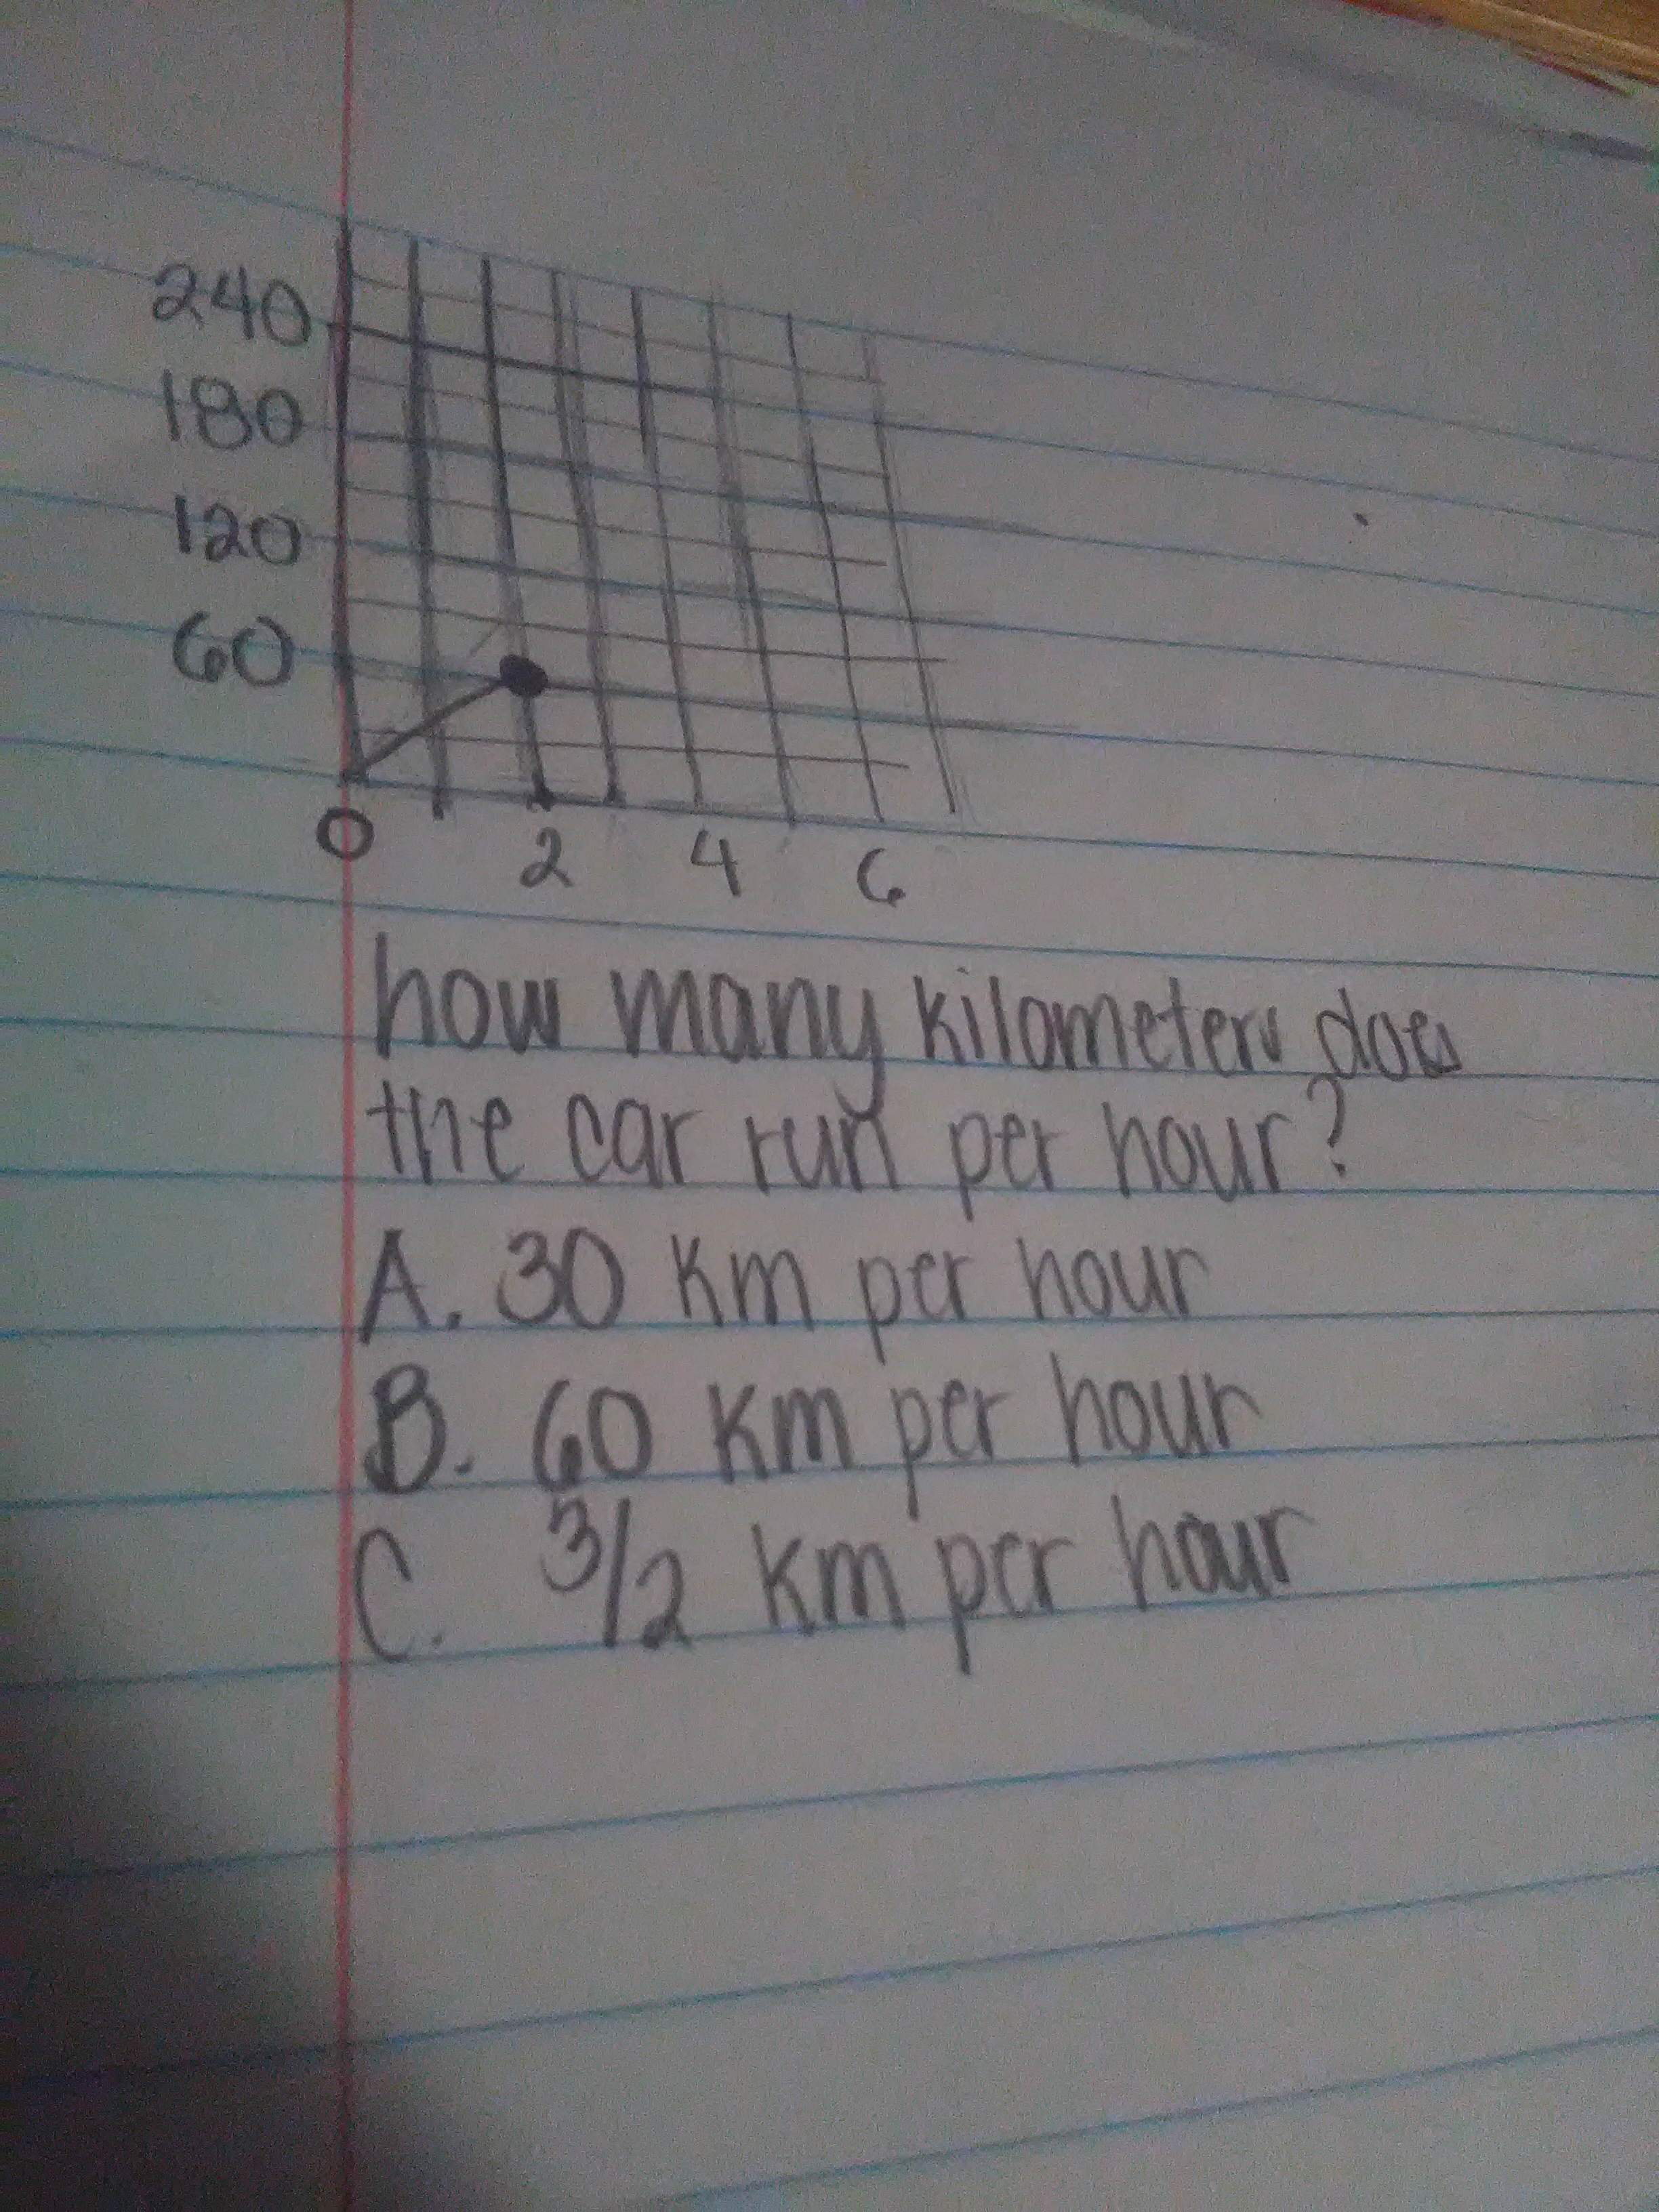 240
180
120
60
0 2 4 6
how many kilometers does
the car run per hour?
A. 30 Km per hour
B. 60 Km per hour
C. 3/2 Km per hour